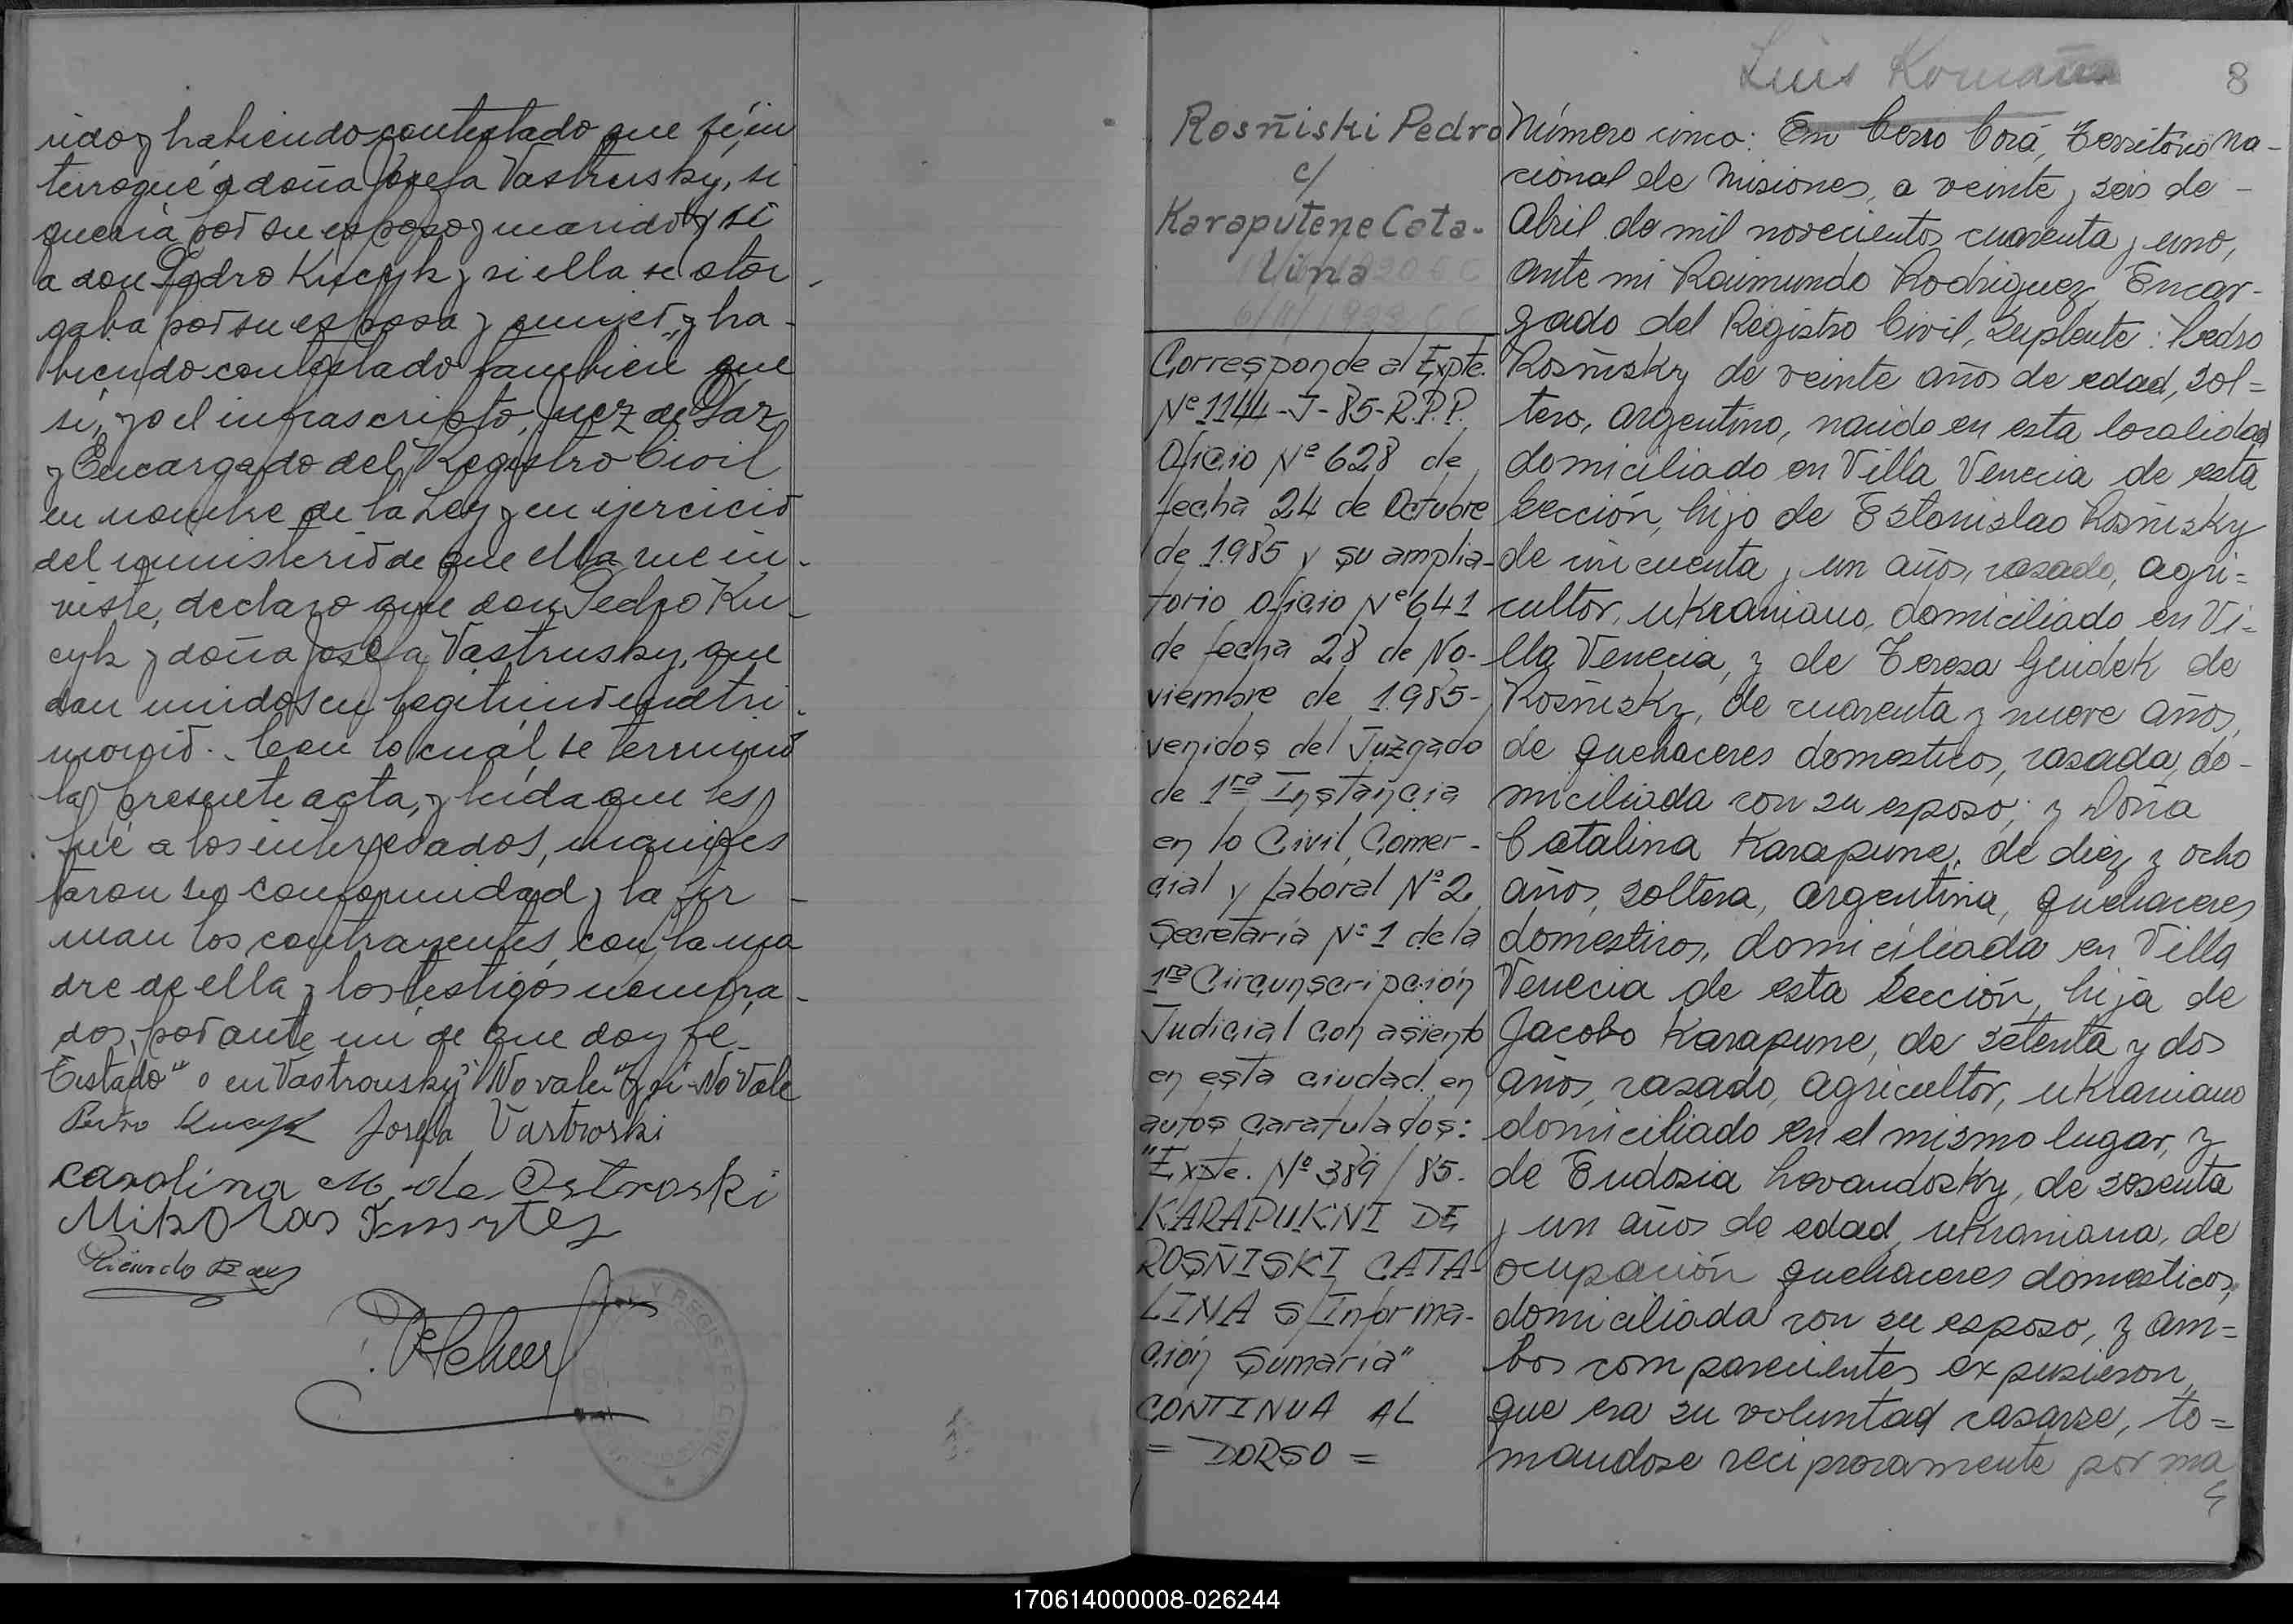 rido y habiendo contestado que sí, in
terrogué a doña Josefa Vastrusky, si
quería por su esposo y marido y si
a don Pedro Kucyk y si ella se otor
gaba por su esposa y mujer, y ha-
biendo contestado también que
sí, yo el infrascripto, Juez de Paz
y Encargado del Registro Civil
en nombre de la Ley y en ejercicio
del ministerio de que ella me in-
viste, declaro que don Pedro Ku-
cyk y doña Josefa Vastrusky, que
dan unidos en legitimo matri-
monio. Con lo cuál, se terminó
la presente acta, y leida que les
fué a los interesados, manifes
taron su conformidad y la fir-
man los contrayentes, con la ma
dre de ella y los testigos nombra-
dos, por ante mi de que doy fé-
Testado " o en Vastrousky" No vale "y si" No Vale
Pedro Kucyk Josefa Vastroski
Carolina M. de Ostroski
Mikolas
Ricardo
8
Luis
Rosñiski Pedro
c/
Karaputene Cata-
lina
Corresponde al Expte.
Nº 1144-J-85-R.P.P.
Oficio Nº 628 de
fecha 24 de Octubre
de 1985 y su amplia-
torio Oficio Nº 641
de fecha 28 de No-
viembre de 1985-
venidos del Juzgado
de 1ra Instancia
en lo Civil, Comer-
cial y Laboral Nº 2.
Secretaría Nº 1 de la
1ra Circunscripción
Judicial con asiento
en esta ciudad en
autos caratulados:
"Expte. Nº 389/85.
KARAPUKNI DE
ROSÑISKI CATA-
LINA S/Informa-
ción Sumaria"
CONTINUA AL
= DORSO =
Número cinco: En Cerro Corá, Territorio Na-
cional de Misiones, a veinte y seis de -
Abril de mil novecientos cuarenta y uno,
ante mi Raimundo Rodriguez Encar-
gado del Registro Civil, Suplente: Pedro
Rosñisky de veinte años de edad, sol=
tero, argentino, nacido en esta localidad
domiciliado en Villa Venecia de esta
Sección, hijo de Estanislao Rosñisky
de cincuenta y un años, casado, agri=
cultor, ukraniano, domiciliado en Vi=
lla Venecia, y de Teresa Guidek de
Rosñisky, de cuarenta y nueve años,
de quehaceres domesticos, casada, do-
miciliada con su esposo; y Doña
Catalina Karapune, de diez y ocho
años, soltera, argentina, quehaceres
domesticos, domiciliada en Villa
Venecia de esta Sección, hija de
Jacobo Karapune, de setenta y dos
años, casado, agricultor, ukraniano
domiciliado en el mismo lugar, y
de Eudosia Levandosky, de sesenta
y un años de edad, ukraniana, de
ocupación quehaceres domesticos,
domiciliada con su esposo, y am=
bos comparecientes expusieron
que era su voluntad casarse, to=
mandose reciprocamente por ma
170614000008-026244